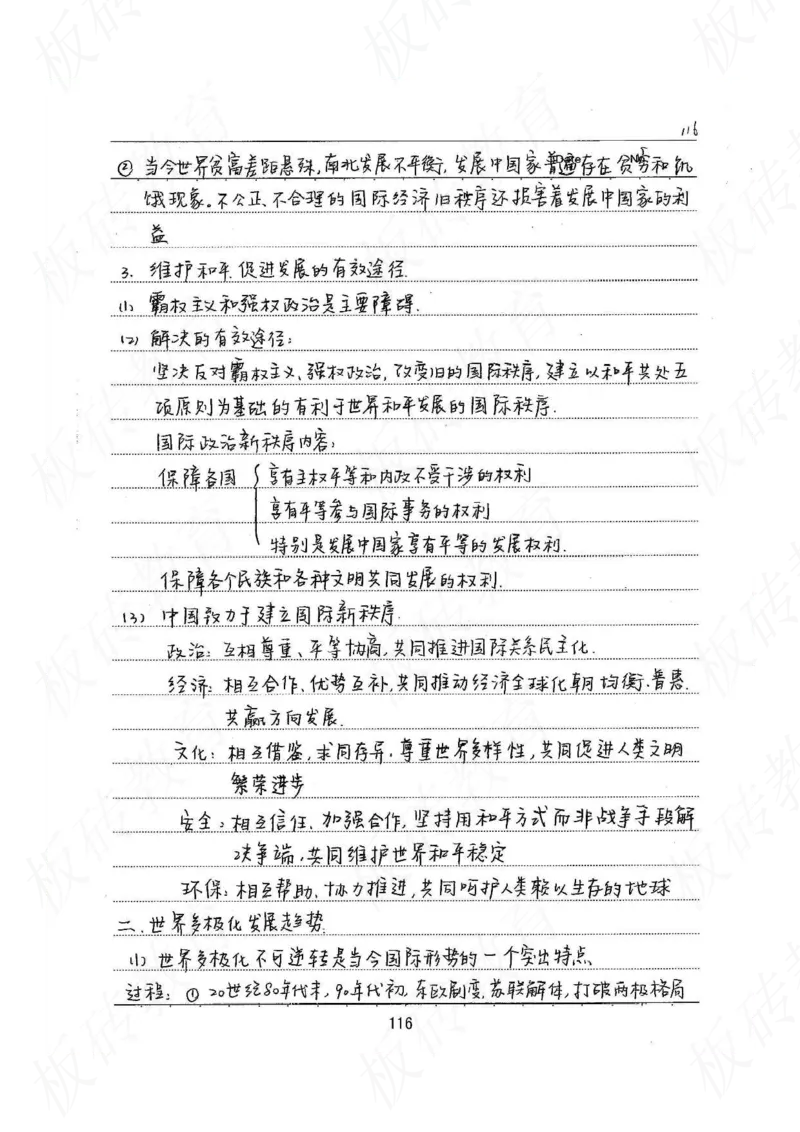 116
② 当今世界贫富差距悬殊,南北发展不平衡,发展中国家普遍存在贫穷和饥
饿现象。不公正、不合理的国际经济旧秩序还损害着发展中国家的利
益
3. 维护和平、促进发展的有效途径.
(1) 霸权主义和强权政治是主要障碍.
(2) 解决的有效途径:
坚决反对霸权主义、强权政治,改变旧的国际秩序,建立以和平共处五
项原则为基础的有利于世界和平发展的国际秩序.
国际政治新秩序内容:
保障各国 { 享有主权平等和内政不受干涉的权利
享有平等参与国际事务的权利
特别是发展中国家享有平等的发展权利.
保障各个民族和各种文明共同发展的权利.
(3) 中国致力于建立国际新秩序.
政治: 互相尊重、平等协商,共同推进国际关系民主化.
经济: 相互合作、优势互补,共同推动经济全球化朝均衡、普惠.
共赢方向发展.
文化: 相互借鉴,求同存异.尊重世界多样性,共同促进人类文明
繁荣进步
安全:相互信任、加强合作,坚持用和平方式而非战争手段解
决争端,共同维护世界和平稳定
环保:相互帮助、协力推进,共同呵护人类赖以生存的地球
二.世界多极化发展趋势.
(1) 世界多极化不可逆转是当今国际形势的一个突出特点
过程: ① 20世纪80年代末,90年代初,东欧剧变,苏联解体,打破两极格局
116
板砖教育